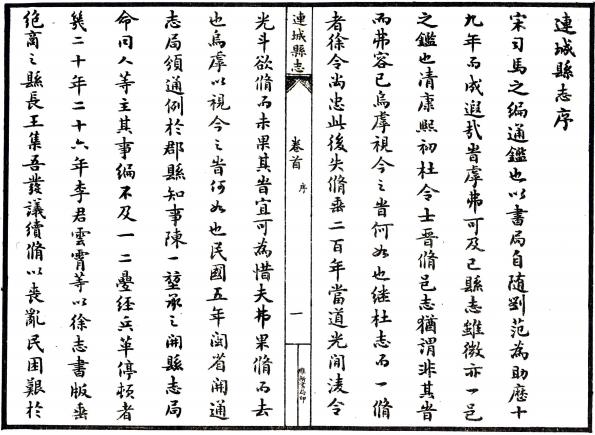 連城縣志序
宋司馬之編通鑑也以書局自隨劉范為助歷十
九年而成遐哉旹虖弗可及已縣志雖微亦一邑
之鑑也清康熙初杜令士晉脩邑志猶謂非其旹
而弗容已烏虖視今之旹何如也继杜志而一脩
者徐令尚忠此後失脩垂二百年當道光間淩令
連城縣志
卷首
序
一
光斗欲脩而未果其旹宜可為惜夫弗果脩而去
也烏虖以視今之旹何如也民國五年閩省開通
志局頒通例於郡縣知事陳一堃承之開縣志局
命同人等主其事編不及一二疊经兵革停頓者
幾二十年二十六年李君雲霄等以徐志書版垂
绝商之縣長王集吾發議續脩以喪亂民困艱於